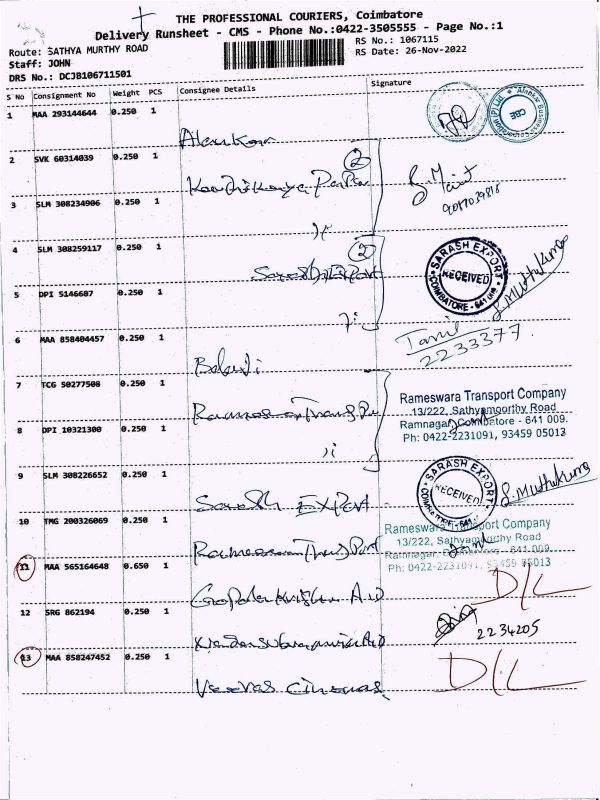 THE PROFESSIONAL COURIERS, Coimbatore
Delivery Runsheet - CMS - Phone No.:0422-3505555 - Page No.:1
Route: SATHYA MURTHY ROAD
RS No.: 1067115
Staff: JOHN
RS Date: 26-Nov-2022
DRS No.: DCJB106711501
S No Consignment No Weight PCS Consignee Details Signature
1 MAA 293144644 0.250 1
2 SVK 60314039 0.250 1
2
3 SLM 308234906 0.250 1
4 SLM 308259117 0.250 1
2
Sarash Export
SARASH EXPORT
RECEIVED
COIMBATORE - 641 009
S. Muthukumar
5 DPI 5146687 0.250 1
Tamil
2233377
6 MAA 858404457 0.250 1
Balaji
7 TCG 50277508 0.250 1
Rameswara Transport Company
13/222, Sathyamoorthy Road
Ramnagar, Coimbatore - 641 009.
Ph: 0422-2231091, 93459 05013
8 DPI 10321300 0.250 1
9 SLM 308226652 0.250 1
Sarash Export
SARASH EXPORT
RECEIVED
S. Muthukumar
10 TMG 200326069 0.250 1
Rameswara Transport Company
13/222, Sathyamoorthy Road
Ramnagar, Coimbatore - 641 009.
Ph: 0422-2231091, 93459 05013
11 MAA 565164648 0.650 1
D/L
12 SRG 862194 0.250 1
2234205
13 MAA 858247452 0.250 1
D/L
Veevas Cinemas